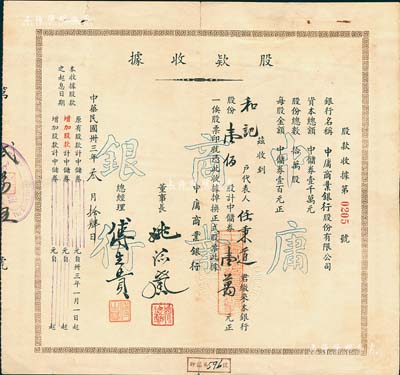 股款收據
股款收據第0205號
銀行名稱 中庸商業銀行股份有限公司
資本總額 中儲券壹千萬元
股份總數 拾萬股
每股金額 中儲券壹百元正
茲收到
和記 戶代表人 任秉道 君繳來本銀行
股份 壹佰 股計中儲券 壹萬 元正
一俟股票印就憑此收據掉換正式股票此據
中庸商業銀行
董事長
總經理
中華民國卅三年 叁 月 拾肆 日
本收據股款之起息日期
原有股款計中儲券 元自卅三年一月一日起
增加股款計中儲券 元自 起
增加股款計中儲券 元自 起
中庸
商業
銀行
第
號
596